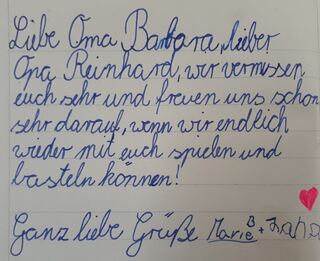 Liebe Oma Barbara, lieber
Opa Reinhard, wir vermissen
euch sehr und freuen uns schon
sehr darauf, wenn wir endlich
wieder mit euch spielen und
basteln können!
Ganz liebe Grüße Marie B +